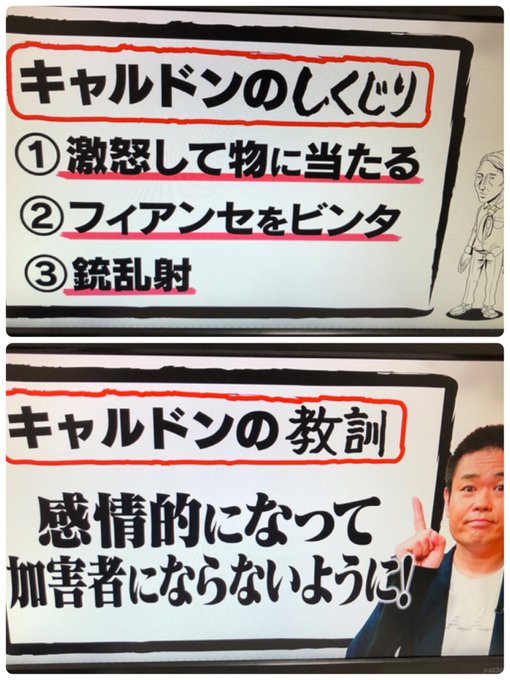 キャルドンのしくじり
①激怒して物に当たる
②フィアンセをビンタ
③銃乱射
キャルドンの教訓
感情的になって
加害者にならないように!